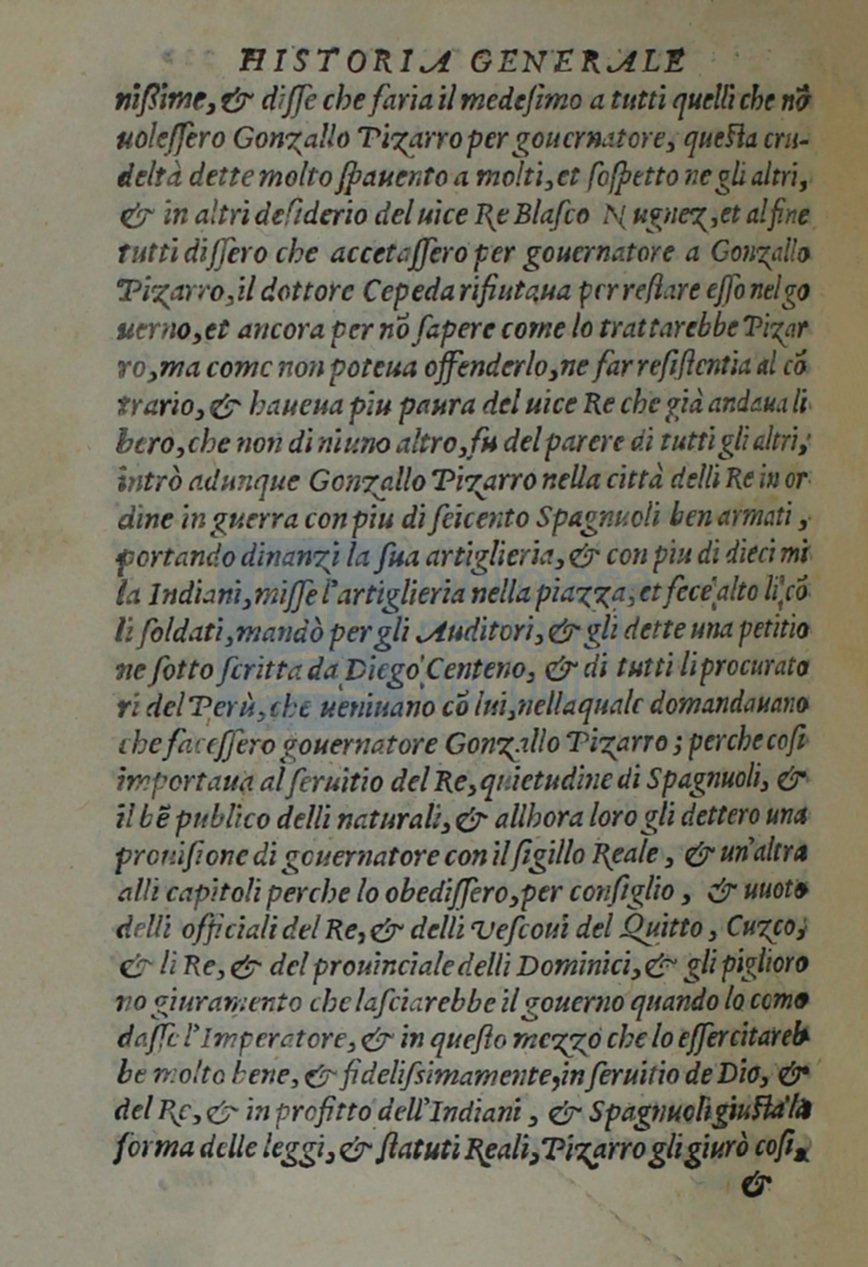 HISTORIA GENERALE
nißime, & disse che faria il medesimo a tutti quelli che nõ
uolessero Gonzallo Pizarro per gouernatore, questa cru-
deltà dette molto spauento a molti, et sospetto ne gli altri,
& in altri desiderio del uice Re Blasco Nugnez, et al fine
tutti dissero che accetassero per gouernatore a Gonzallo
Pizarro, il dottore Cepeda rifiutaua per restare esso nel go
uerno, et ancora per nõ sapere come lo trattarebbe Pizar
ro, ma come non poteua offenderlo, ne far resistentia al cõ
trario, & haueua piu paura del uice Re che già andaua li
bero, che non di niuno altro, fu del parere di tutti gli altri,
intrò adunque Gonzallo Pizarro nella città delli Re in or
dine in guerra con piu di seicento Spagnuoli ben armati,
portando dinanzi la sua artiglieria, & con piu di dieci mi
la Indiani, misse l'artiglieria nella piazza, et fece alto li cõ
li soldati, mandò per gli Auditori, & gli dette una petitio
ne sotto scritta da Diego Centeno, & di tutti li procurato
ri del Perù, che ueniuano cõ lui, nella quale domandauano
che facessero gouernatore Gonzallo Pizarro; perche cosi
importaua al seruitio del Re, quietudine di Spagnuoli, &
il bẽ publico delli naturali, & allhora loro gli dettero una
prouisione di gouernatore con il sigillo Reale, & un'altra
alli capitoli perche lo obedissero, per consiglio, & uuoto
delli officiali del Re, & delli Vescoui del Quitto, Cuzco,
& li Re, & del prouinciale delli Dominici, & gli piglioro
no giuramento che lasciarebbe il gouerno quando lo como
dasse l'Imperatore, & in questo mezzo che lo essercitareb
be molto bene, & fidelissimamente, in seruitio de Dio, &
del Re, & in profitto dell'Indiani, & Spagnuoli giusta la
forma delle leggi, & statuti Reali, Pizarro gli giurò cosi,
&